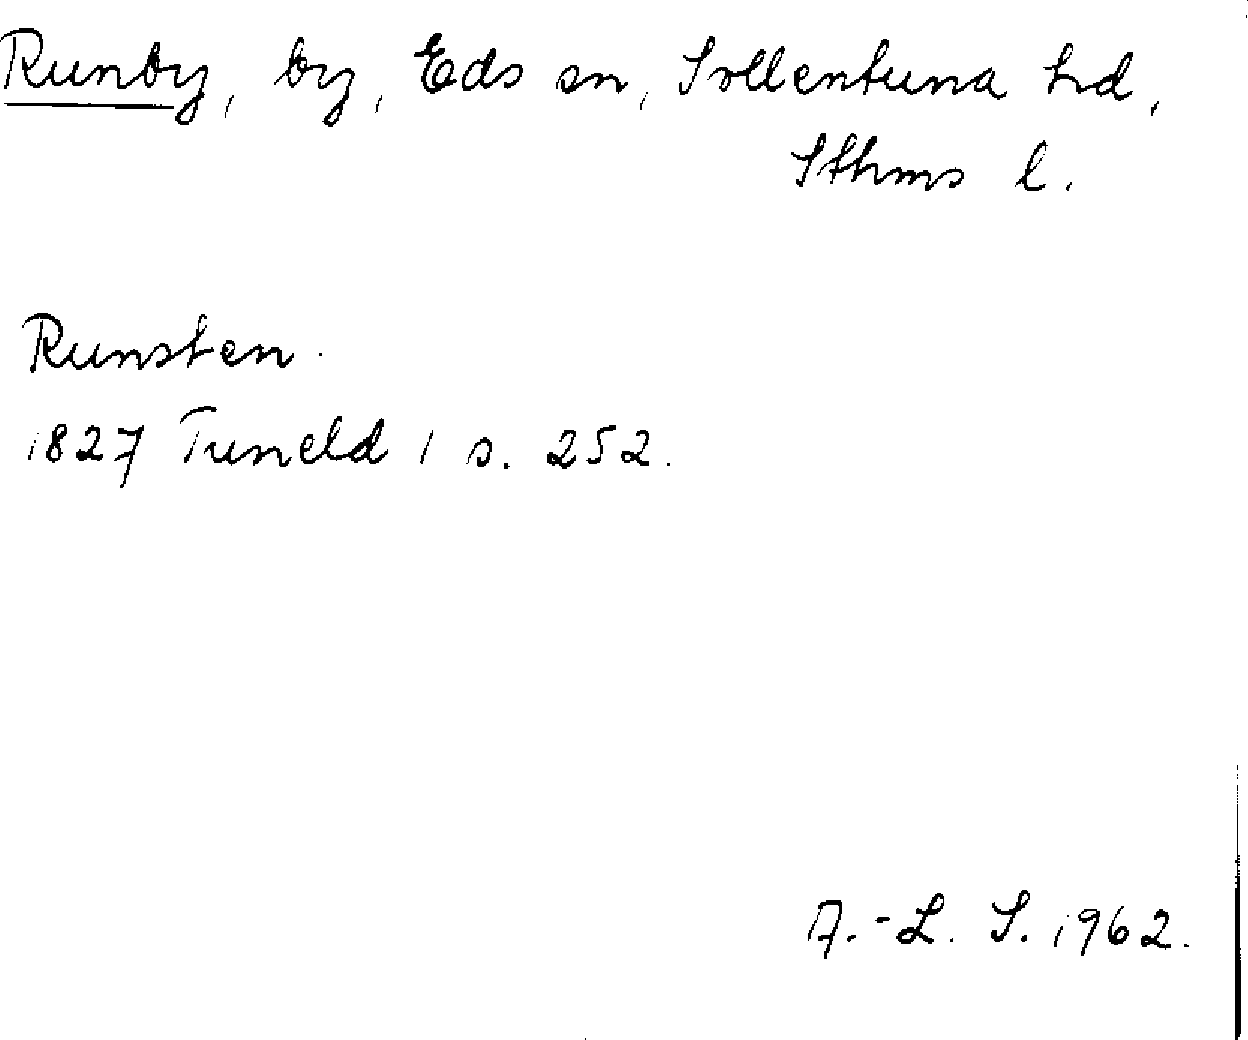 Runby, by, Eds sn, Sollentuna hd,
Sthms l.
Runsten.
1827 Tuneld 1 s. 252.
A.-L. S. 1962.